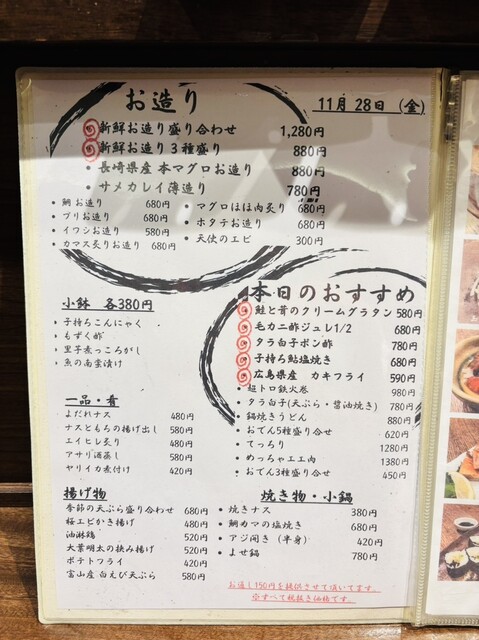 お造り
11月 28日 (金)
新鮮お造り盛り合わせ 1,280円
新鮮お造り３種盛り 880円
・長崎県産 本マグロお造り 880円
・サメカレイ薄造り 780円
・鯛お造り 680円
・ブリお造り 680円
・イワシお造り 580円
・カマス炙りお造り 680円
・マグロほほ肉炙り 680円
・ホタテお造り 680円
・天使のエビ 300円
小鉢 各380円
・子持ちこんにゃく
・もずく酢
・里子煮っころがし
・魚の南蛮漬け
本日のおすすめ
鮭と茸のクリームグラタン 580円
毛カニ酢ジュレ1/2 680円
タラ白子ポン酢 780円
子持ち鮎塩焼き 680円
広島県産 カキフライ 590円
・超トロ鉄火巻 980円
・タラ白子(天ぷら・醤油焼き) 780円
・鍋焼きうどん 880円
・おでん5種盛り合せ 620円
・てっちり 1280円
・めっちゃエエ肉 1380円
・おでん３種盛り合せ 450円
一品・肴
よだれナス 480円
ナスともちの揚げ出し 580円
エイヒレ炙り 480円
アサリ酒蒸し 580円
ヤリイカ煮付け 420円
揚げ物
季節の天ぷら盛り合わせ 680円
桜エビかき揚げ 480円
油淋鶏 520円
大葉明太の挟み揚げ 520円
ポテトフライ 420円
富山産 白えび天ぷら 580円
焼き物・小鍋
・焼きナス 380円
・鯛カマの塩焼き 680円
・アジ開き（半身） 420円
・よせ鍋 780円
お通し150円を提供させて頂いてます。
※すべて税抜き価格です。